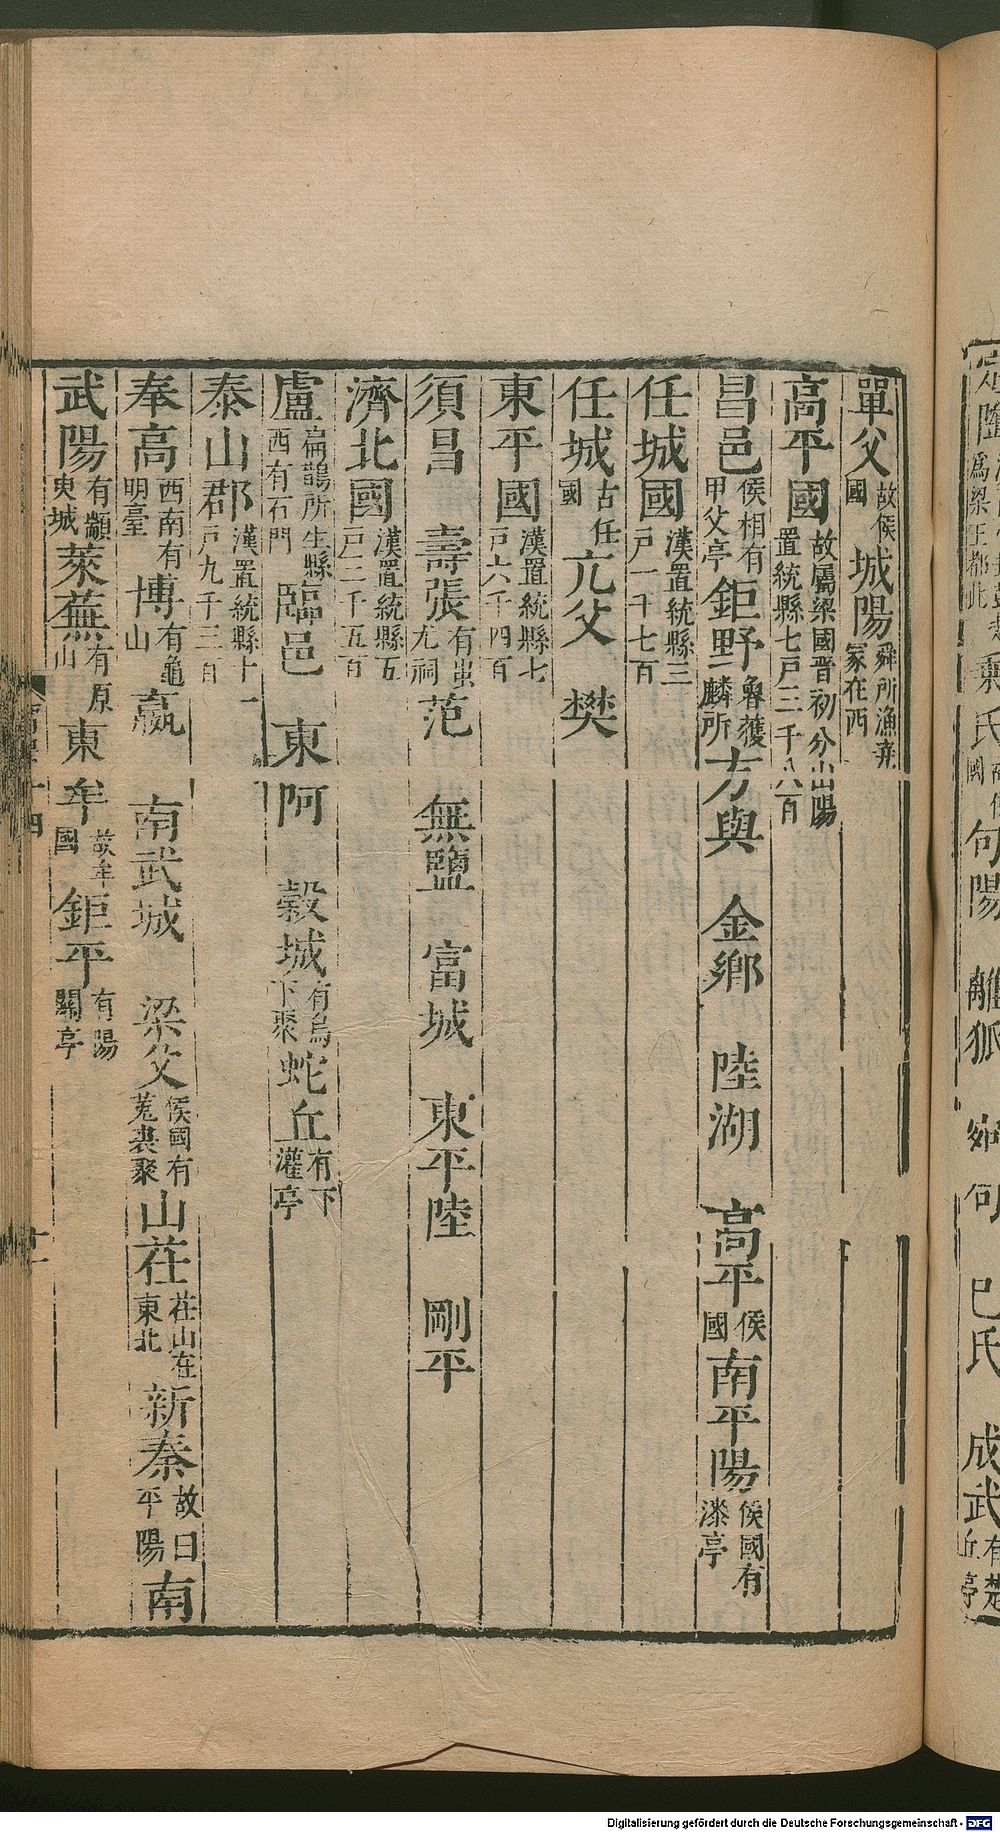 單父故侯國 城陽舜所漁堯冢在西
高平國故屬梁國晉初分山陽置統縣七戸三千八百
昌邑侯相有甲父亭 鉅野魯獲麟所 方與 金鄉 陸湖 高平侯國 南平陽侯國有漆亭
任城國漢置統縣三戸一千七百
任城古任國 亢父 樊
東平國漢置統縣七戸六千四百
須昌 壽張有蚩尤祠 范 無鹽 富城 東平陸 剛平
濟北國漢置統縣五戸三千五百
盧扁鵲所生縣西有石門 臨邑 東阿 穀城有烏下聚 蛇丘有下灌亭
泰山郡漢置統縣十一戸九千三百
奉高西南有明臺 博有龜山 嬴 南武城 梁父侯國有菟裘聚 山茌茌山在東北 新泰故曰平陽 南
武陽有顓臾城 萊蕪有原山 東牟故牟國 鉅平有陽關亭
爲梁王都此 氏 句陽 離狐 宛句 巳氏 成武有楚丘亭
Digitalisierung gefördert durch die Deutsche Forschungsgemeinschaft - DFG